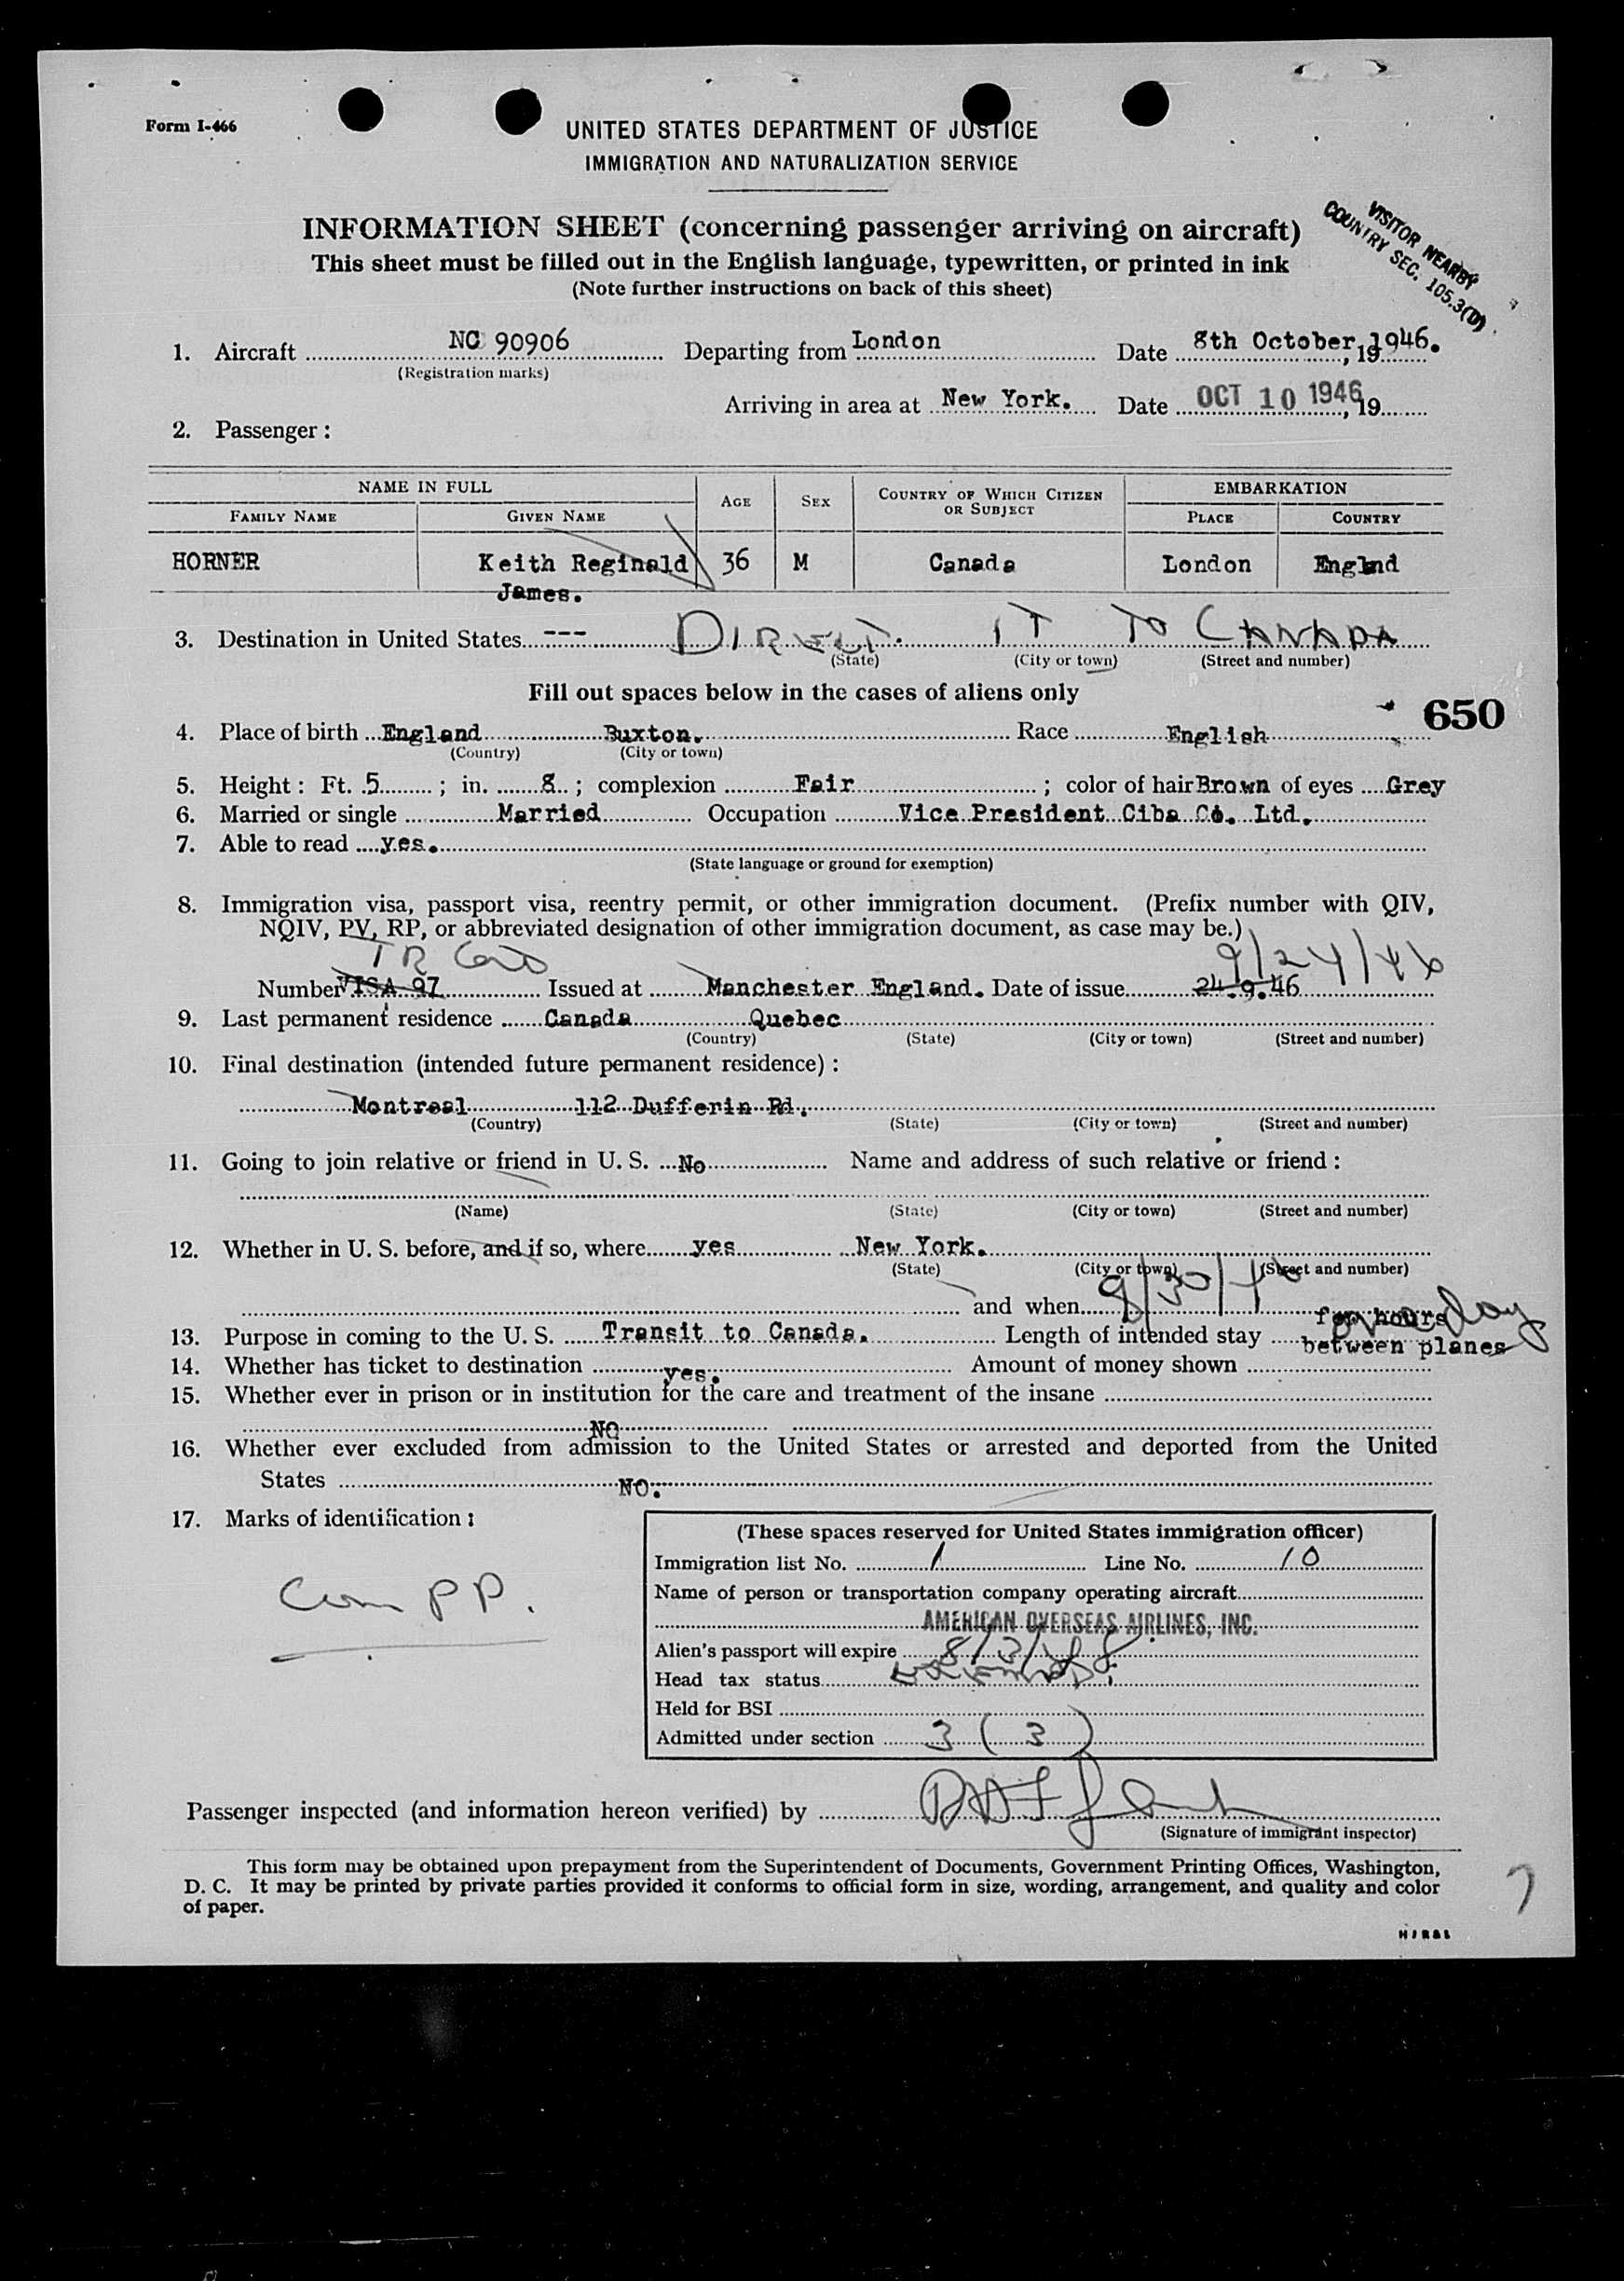 Form I-466
UNITED STATES DEPARTMENT OF JUSTICE
IMMIGRATION AND NATURALIZATION SERVICE
INFORMATION SHEET (concerning passenger arriving on aircraft)
This sheet must be filled out in the English language, typewritten, or printed in ink
(Note further instructions on back of this sheet)
VISITOR NEARBY
COUNTRY SEC. 105.3(D)
1. Aircraft NC 90906 Departing from London Date 8th October, 19 1946.
(Registration marks)
Arriving in area at New York. Date OCT 10 1946, 19
2. Passenger:
NAME IN FULL AGE SEX COUNTRY OF WHICH CITIZEN OR SUBJECT EMBARKATION
FAMILY NAME GIVEN NAME PLACE COUNTRY
HORNER Keith Reginald 36 M Canada London Englnd
James.
3. Destination in United States --- DIRECT. IT TO CANADA
(State) (City or town) (Street and number)
Fill out spaces below in the cases of aliens only
650
4. Place of birth England Buxton. Race English
(Country) (City or town)
5. Height: Ft. 5 ; in. 8 ; complexion Fair ; color of hair Brown of eyes Grey
6. Married or single Married Occupation Vice President Ciba Co. Ltd.
7. Able to read yes.
(State language or ground for exemption)
8. Immigration visa, passport visa, reentry permit, or other immigration document. (Prefix number with QIV,
NQIV, PV, RP, or abbreviated designation of other immigration document, as case may be.)
TR 9/24/46
Number VISA 97 Issued at Manchester England. Date of issue 24.9.46
9. Last permanent residence Canada Quebec
(Country) (State) (City or town) (Street and number)
10. Final destination (intended future permanent residence):
Montreal 112 Dufferin Rd.
(Country) (State) (City or town) (Street and number)
11. Going to join relative or friend in U. S. No Name and address of such relative or friend:
(Name) (State) (City or town) (Street and number)
12. Whether in U. S. before, and if so, where yes New York.
(State) (City or town) (Street and number)
and when 9/30/46
few hours
13. Purpose in coming to the U. S. Transit to Canada. Length of intended stay between planes
day
14. Whether has ticket to destination yes. Amount of money shown
15. Whether ever in prison or in institution for the care and treatment of the insane
NO
16. Whether ever excluded from admission to the United States or arrested and deported from the United
States NO.
17. Marks of identification:
PP.
(These spaces reserved for United States immigration officer)
Immigration list No. 1 Line No. 10
Name of person or transportation company operating aircraft
AMERICAN OVERSEAS AIRLINES, INC.
Alien's passport will expire 8/3/48
Head tax status
Held for BSI
Admitted under section 3 (3)
Passenger inspected (and information hereon verified) by
(Signature of immigrant inspector)
This form may be obtained upon prepayment from the Superintendent of Documents, Government Printing Offices, Washington,
D. C. It may be printed by private parties provided it conforms to official form in size, wording, arrangement, and quality and color
of paper.